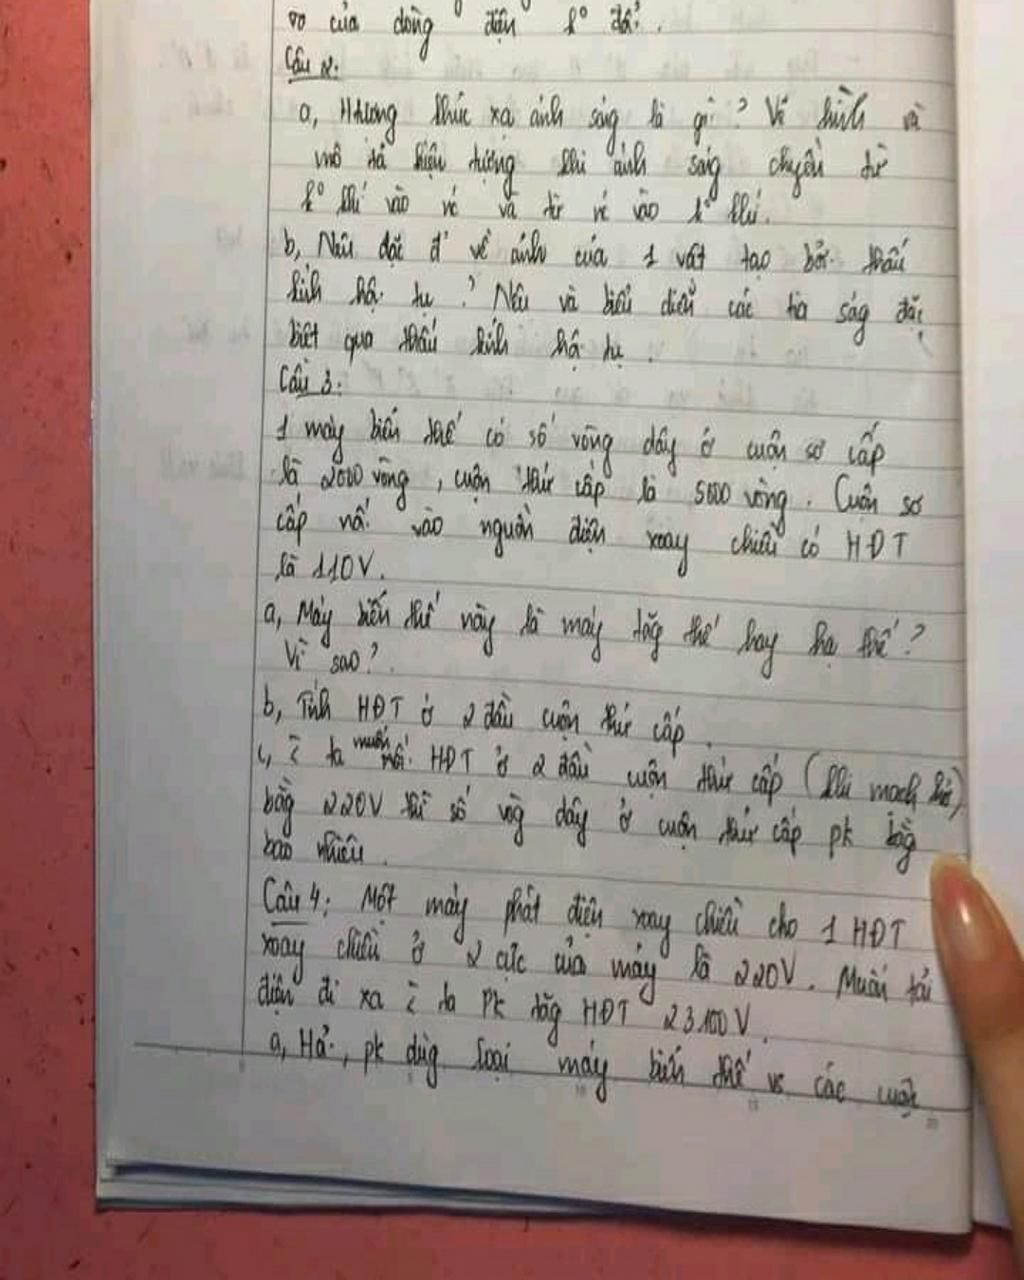 vo của dòng điện k° đổi.
Câu 2:
a, Htượng khúc xạ ánh sáng là gì? Vẽ hình và
mô tả hiện tượng khi ánh sáng chyền từ
k° khí vào nc và từ nc vào k° khí.
b, Nêu đặc đ' về ảnh của 1 vật tạo bởi thấu
kính hội tụ? Nêu và biểu diễn các tia ság đặc
biệt qua thấu kính hội tụ.
Câu 3:
1 máy biến thế có số vòng dây ở cuộn sơ cấp
là 2000 vòng, cuộn thứ cấp là 5000 vòng. Cuộn sơ
cấp nối vào nguồn điện xoay chiều có HĐT
là 110V.
a, Máy biến thế này là máy tăg thế hay hạ thế?
Vì sao?
b, Tính HĐT ở 2 đầu cuộn thứ cấp.
c, ta muốn HĐT ở 2 đầu cuộn thứ cấp (khi mạch hở)
bằg 220V thì số vòg dây ở cuộn thứ cấp pk bằg
bao nhiêu.
Câu 4: Một máy phát điện xoay chiều cho 1 HĐT
xoay chiều ở 2 cực của máy là 220V. Muốn tải
điện đi xa ta pk tăg HĐT 23100V.
a, Hỏi, pk dùg loại máy biến thế vs các cuộn